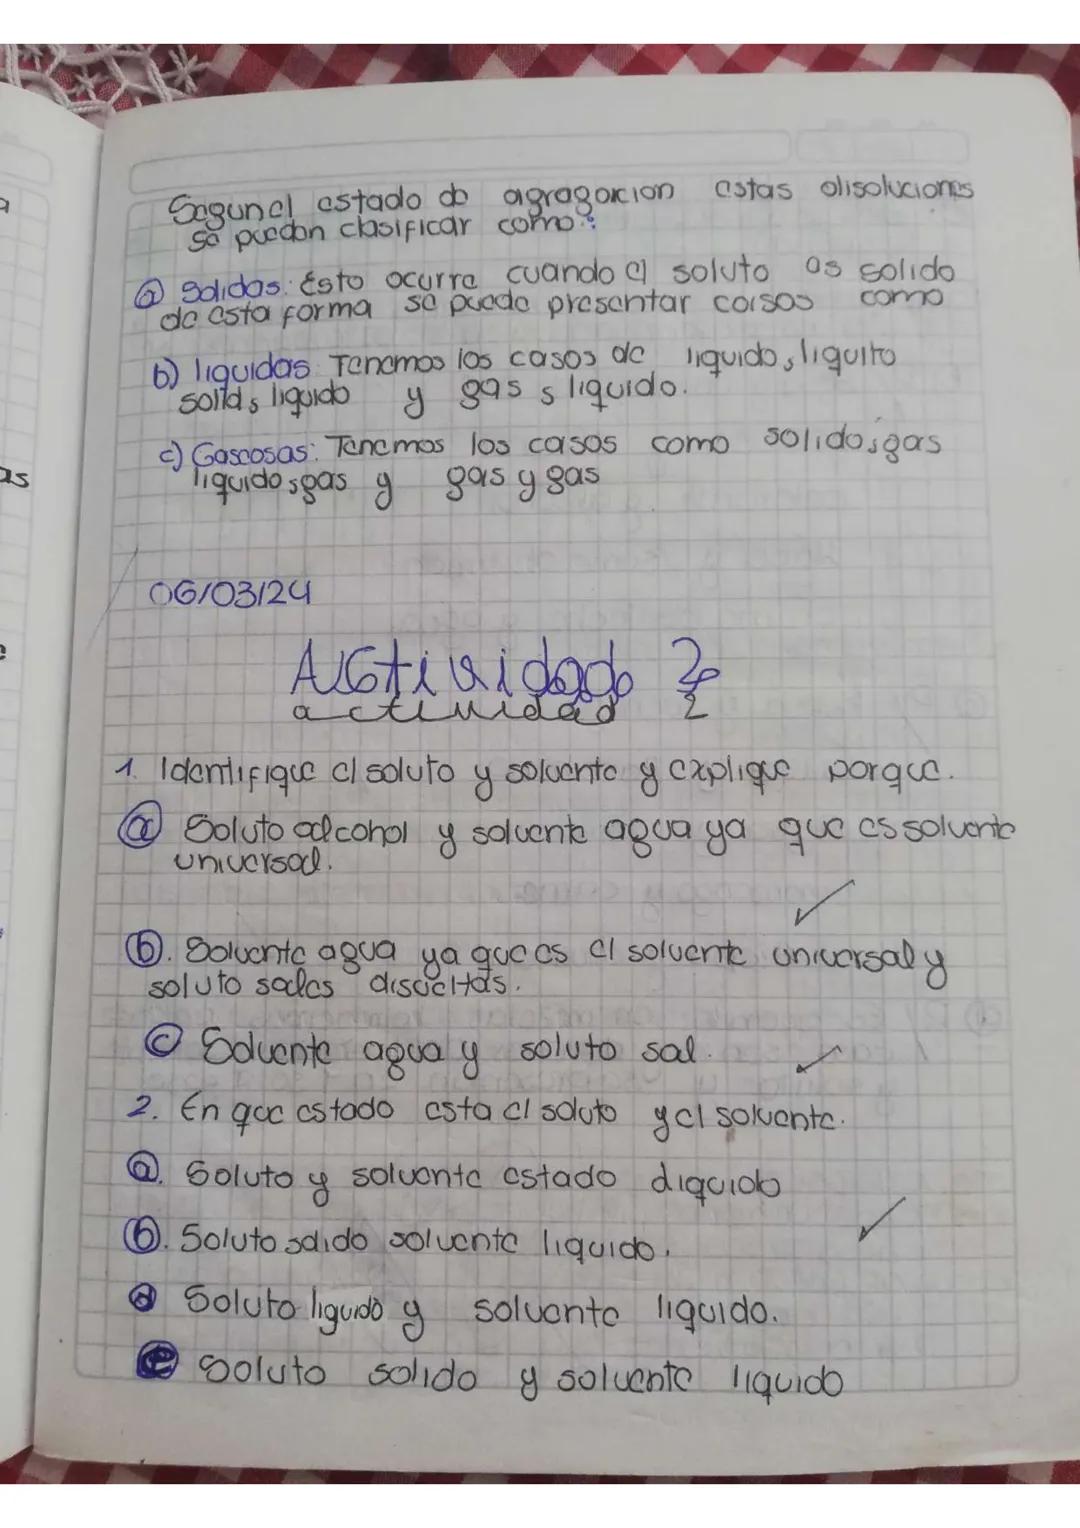 Segun el estado de agregacion estas disoluciones
se pueden clasificar como:
a) Solidas: Esto ocurre cuando el soluto es solido
de esta forma se puede presentar casos como
b) liquidas: Tenemos los casos de liquido, liquito
solid, liquido y gas, liquido.
c) Gaseosas: Tenemos los casos como solido, gas
liquido, gas y gas y gas
06/03/24
Actividad 2
actividad 2
1. Identifique el soluto y solvente y explique porque.
a Soluto alcohol y solvente agua ya que es solvente
universal.
b. Solvente agua ya que es el solvente universal y
soluto sales disueltas.
c Solvente agua y soluto sal.
2. En que estado esta el soluto y el solvente.
a. Soluto y solvente estado liquido
b. Soluto solido solvente liquido.
d Soluto liquido y solvente liquido.
e Soluto solido y solvente liquido
as